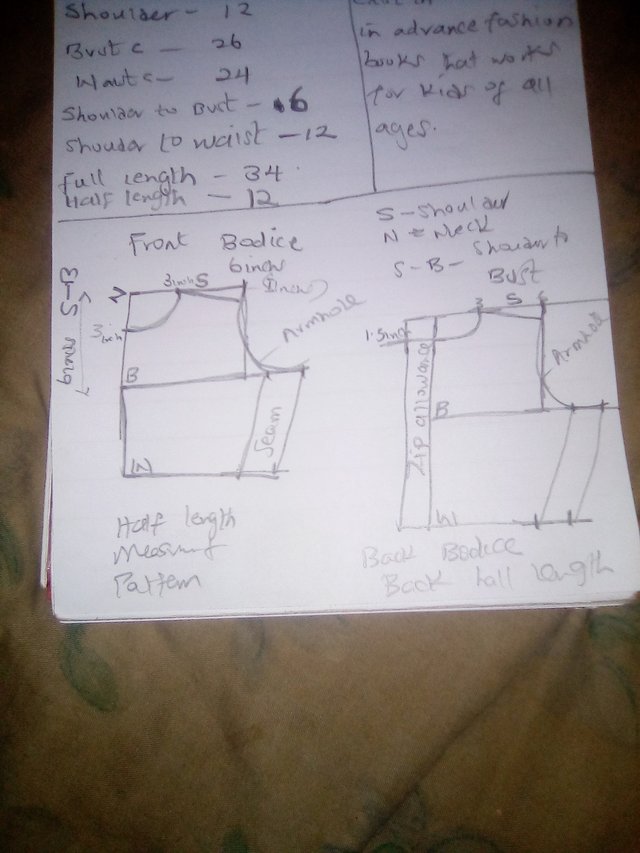 Shoulder - 12
Bust c - 26
Waist c - 24
Shoulder to Bust - 6
Shouder to waist - 12
full length - 34
Half length - 12
in advance fashion
books that works
for kids of all
ages.
S - Shoulder
N = Neck
S - B - Shoulder to
Bust
Front Bodice
6inches
3inch S
N
3inch
B
W
Armhole
Seam
Half length
Pattern
3
S
1.5inch
Zip allowance
B
W
Armhole
Back Bodice
Back half length